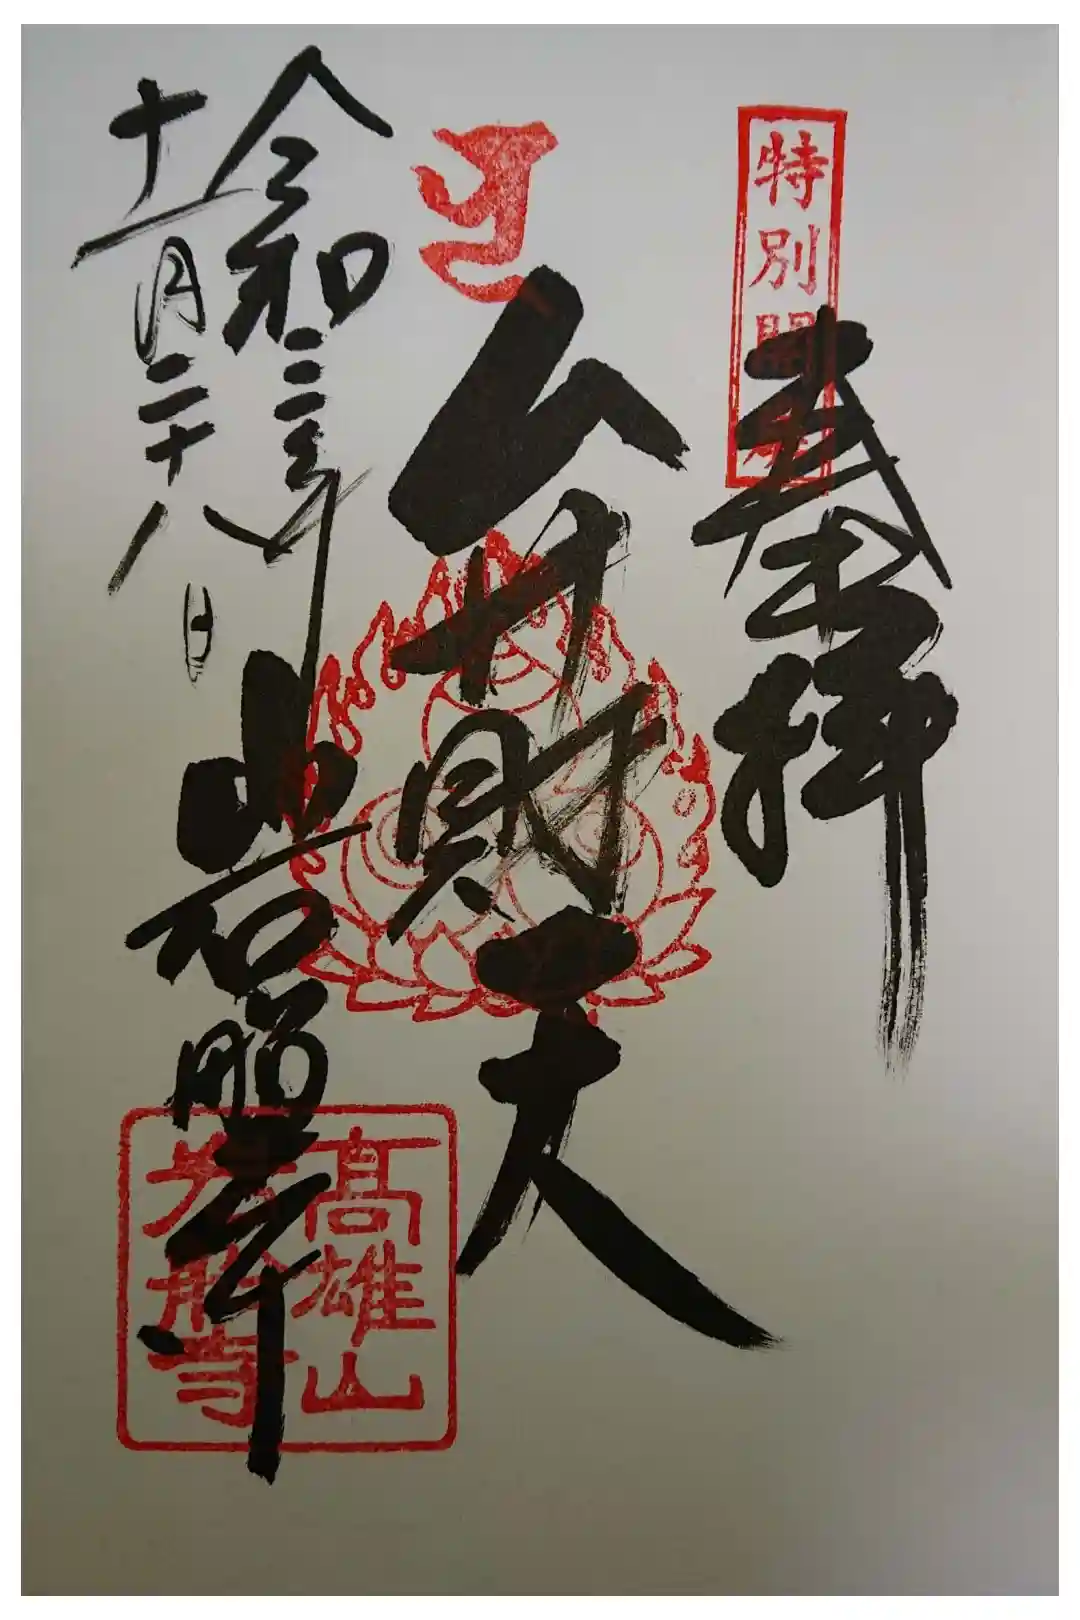 特別開扉
奉拝
弁財天
令和三年
十一月二十八日
岩船寺
髙雄山
岩船寺